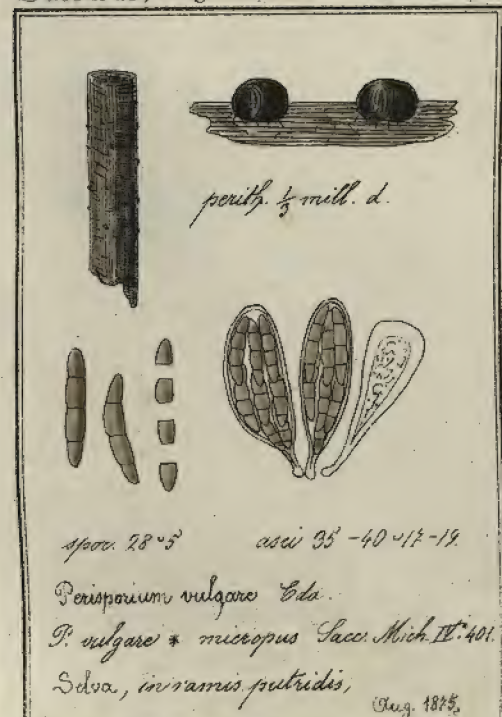 perith. 1/3 mill. d.
spor. 28 5
asci 35-40 17-19.
Perisporium vulgare Cda.
P. vulgare * micropus Sacc. Mich. IV. 401.
Selva, in ramis putridis,
Aug. 1875.